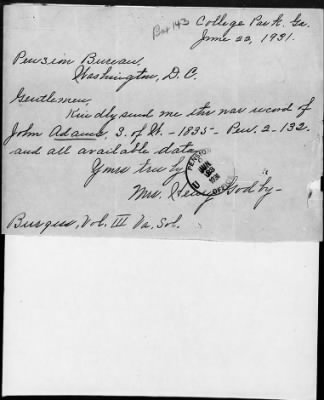 Box 143 College Park. Ga.
June 22, 1931.
Pension Bureau,
Washington, D.C.
Gentlemen,
Kindly send me the war record of
John Adams, S. of W. - 1835 - Rev. 2 - 132.
and all available data.
Yours truly
Mrs. Henry Godby -
Burgess, Vol. III Va. Sol.